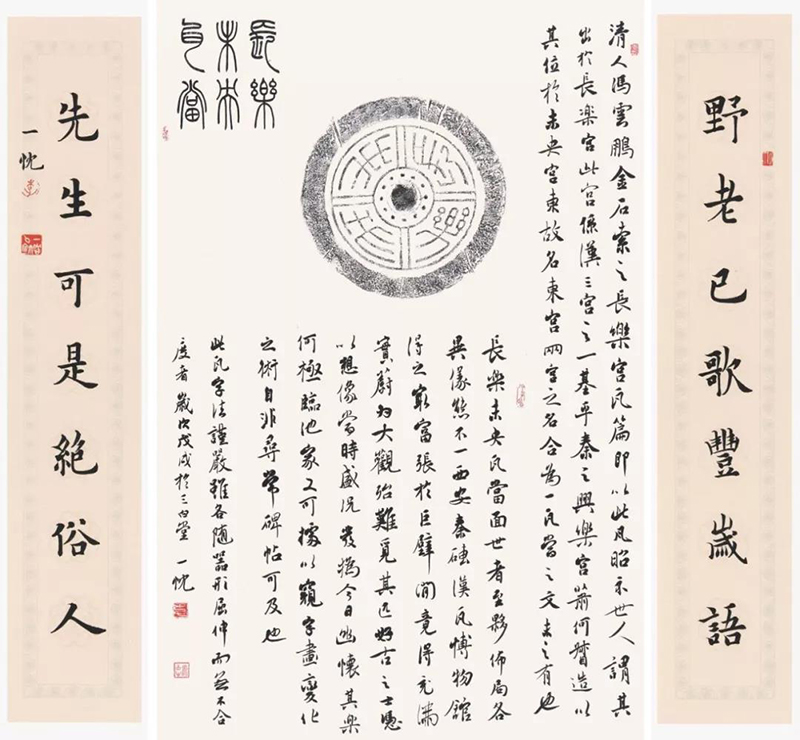 野老已歌豐歲語
長樂
未央
瓦當
清人馮雲鵬金石索之長樂宮瓦篇即以此瓦昭示世人謂其
出於長樂宮此宮係漢三宮之一基乎秦之興樂宮蕭何督造以
其位於未央宮東故名東宮兩宮之名合為一瓦當之文未之有也
長樂未央瓦當面世者至夥佈局各
異儀態不一西安秦磚漢瓦博物館
得之最富張於巨壁間竟得充滿
實蔚為大觀殆難覓其匹好古之士憑
以想像當時盛況發為今日幽懷其樂
何極臨池家又可據以窺字畫變化
之術自非尋常碑帖可及也
此瓦字法謹嚴雖各隨器形屈伸而無不合
度者歲次戊戌於三白堂一忱
先生可是絕俗人
一忱